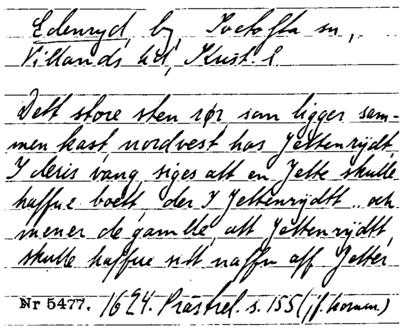 Edenryd, by, Ivetofta sn,
Villands hd, Krist. l
Dett store sten rør, som ligger sam-
men kast, nordvest hos Jettenrÿdt,
I deris vang, siges att en Jette skulle
haffue boett, der I Jettenrÿdtt, och
mener de gamlle, att Jettenrÿdtt,
skulle haffue sitt naffn aff Jetter
Nr 5477. 1624. Prästrel. s. 155 (jf. kornm.)